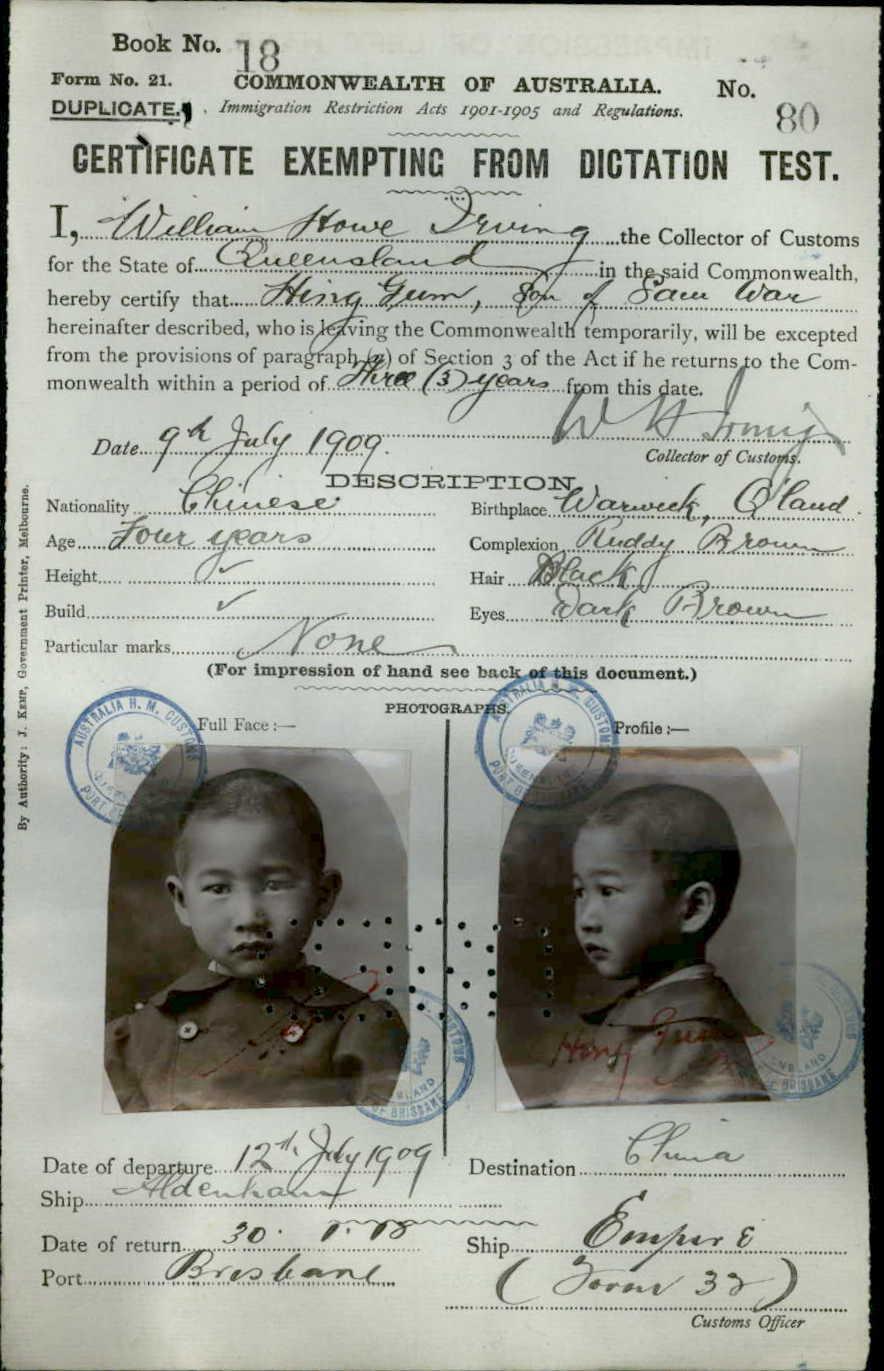 Book No. 18
Form No. 21. COMMONWEALTH OF AUSTRALIA. No. 80
DUPLICATE. Immigration Restriction Acts 1901-1905 and Regulations.
CERTIFICATE EXEMPTING FROM DICTATION TEST.
I, William Howe Irving the Collector of Customs
for the State of Queensland in the said Commonwealth,
hereby certify that Hing Gum, Son of Sam War
hereinafter described, who is leaving the Commonwealth temporarily, will be excepted
from the provisions of paragraph (a) of Section 3 of the Act if he returns to the Com-
monwealth within a period of Three (3) years from this date.
W H Irving
Date 9th July 1909. Collector of Customs.
DESCRIPTION
Nationality Chinese Birthplace Warwick, Q'land.
Age Four years Complexion Ruddy Brown
Height Hair Black
Build Eyes Dark Brown
Particular marks None
(For impression of hand see back of this document.)
PHOTOGRAPHS.
Full Face :— Profile :—
AUSTRALIA H. M. CUSTOMS
AUSTRALIA H. M. CUSTOMS
Hing Gum
OF BRISBANE
OF BRISBANE
Date of departure 12th July 1909 Destination China
Ship Aldenham
Date of return 30. Ship Empire
Port Brisbane (Form 32)
Customs Officer
By Authority: J. KEMP, Government Printer, Melbourne.